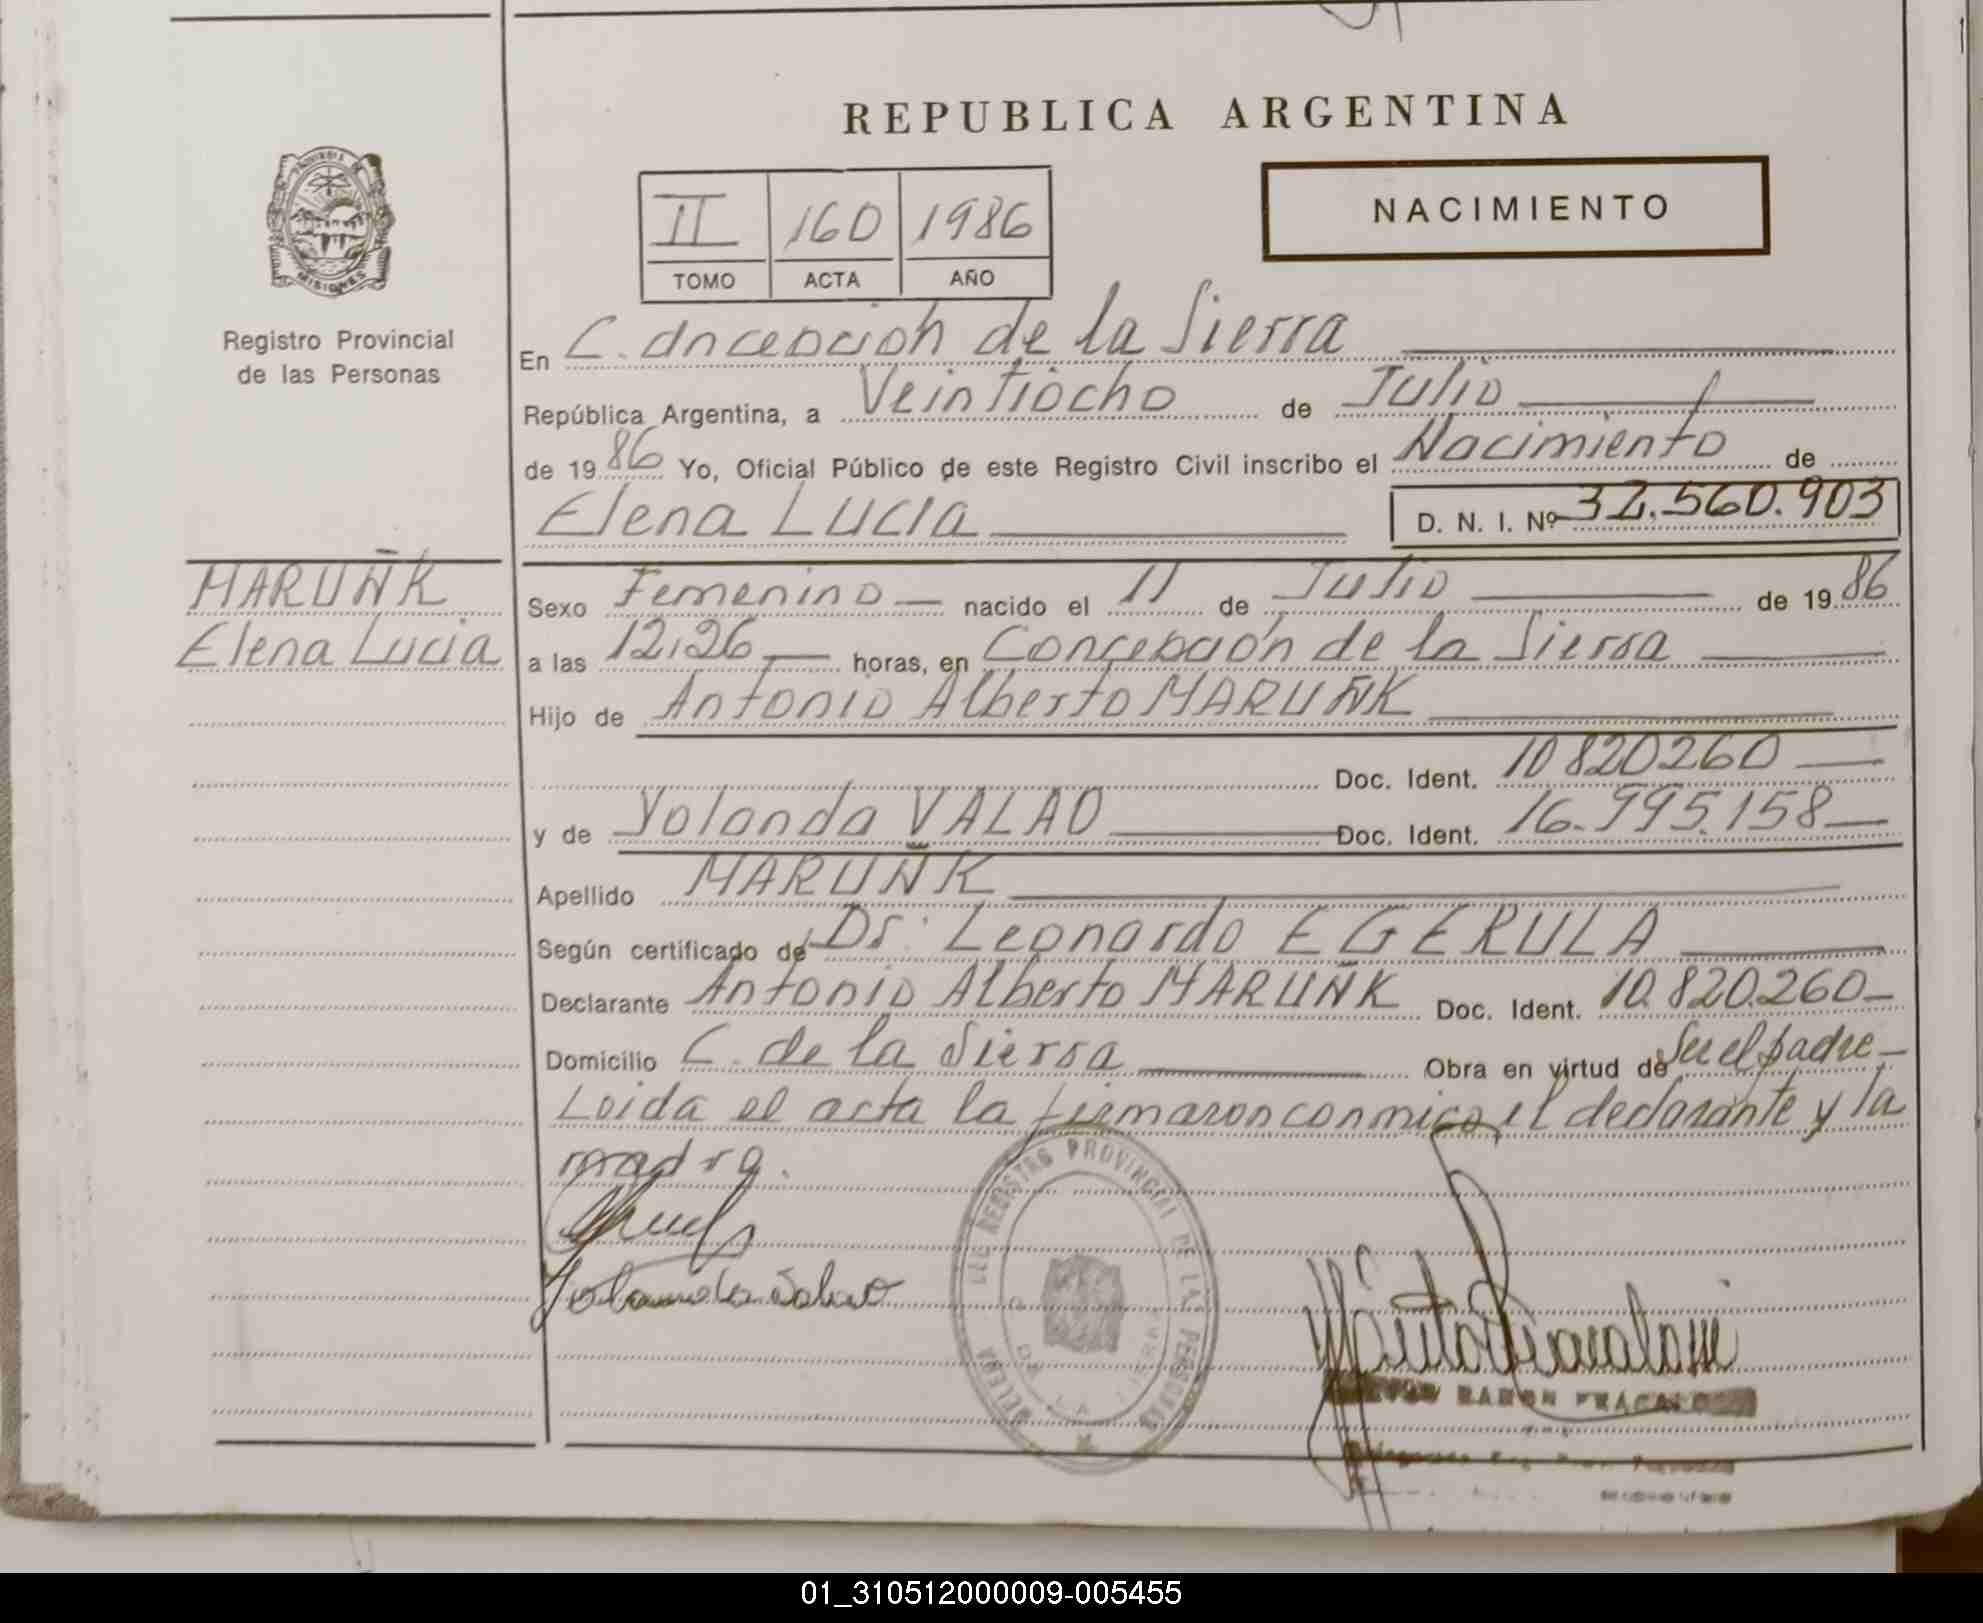 REPUBLICA ARGENTINA
PROVINCIA DE MISIONES
II 160 1986
NACIMIENTO
TOMO ACTA AÑO
Registro Provincial
de las Personas
En C. Oncepción de la Sierra
República Argentina, a Veintiocho de Julio
de 1986 Yo, Oficial Público de este Registro Civil inscribo el Nacimiento de
Elena Lucia D. N. I. Nº 32.560.903
MARUÑK
Elena Lucia
Sexo Femenino nacido el 11 de Julio de 1986
a las 12,26 horas, en Concepción de la Sierra
Hijo de Antonio Alberto MARUÑK
Doc. Ident. 10820260
y de Yolanda VALAO Doc. Ident. 16.995.158
Apellido MARUÑK
Según certificado de Dr. Leonardo EGERULA
Declarante Antonio Alberto MARUÑK Doc. Ident. 10.820.260
Domicilio C. de la Sierra Obra en virtud de Ser el padre
Loida el acta la firmaron conmigo el declarante y la
madre.
REGISTRO PROVINCIAL DE LAS PERSONAS
DE LA SIERRA
RAMON
01_310512000009-005455